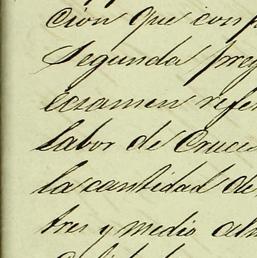 cion que con
Segunda
examen refe
labor de Cruce
la cantidad de
tres y medio